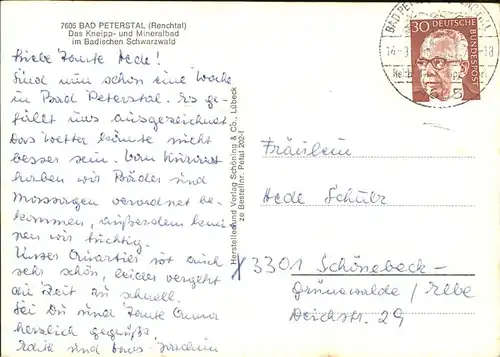 7605 BAD PETERSTAL (Renchtal)
Das Kneipp- und Mineralbad
im Badischen Schwarzwald
Liebe Tante Hede!
Sind nun schon eine Woche
in Bad Peterstal. Es ge-
fällt uns ausgezeichnet
Das Wetter könnte nicht
besser sein. Vom Kurarzt
haben wir Bäder und
Massagen verordnet be-
kommen, außerdem knei-
pen wir tüchtig.
Unser Quartier ist auch
sehr schön, leider vergeht
die Zeit zu schnell.
Sei Du und Tante Anna
herzlich gegrüßt
Edith und Hans-Joachim
Herstellen und Verlag Schöning & Co., Lübeck
ze Bestellnr. Petal 202-1
BAD PETERSTAL
30 DEUTSCHE
BUNDESPOST
Fräulein
Hede Schulz
X 3301 Schönebeck-
Grünewalde / Elbe
Deichstr. 29